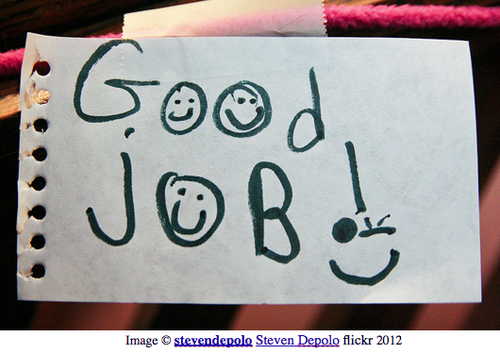 Good
joB!
Image © stevendepolo Steven Depolo flickr 2012